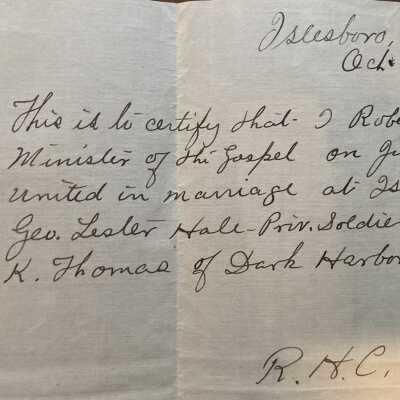 Islesboro,
Oct.
This is to certify that I Robe
Minister of the Gospel on Ju
united in marriage at Is
Geo. Lester Hale - Priv. Soldie
K. Thomas of Dark Harbo
R. H. C.